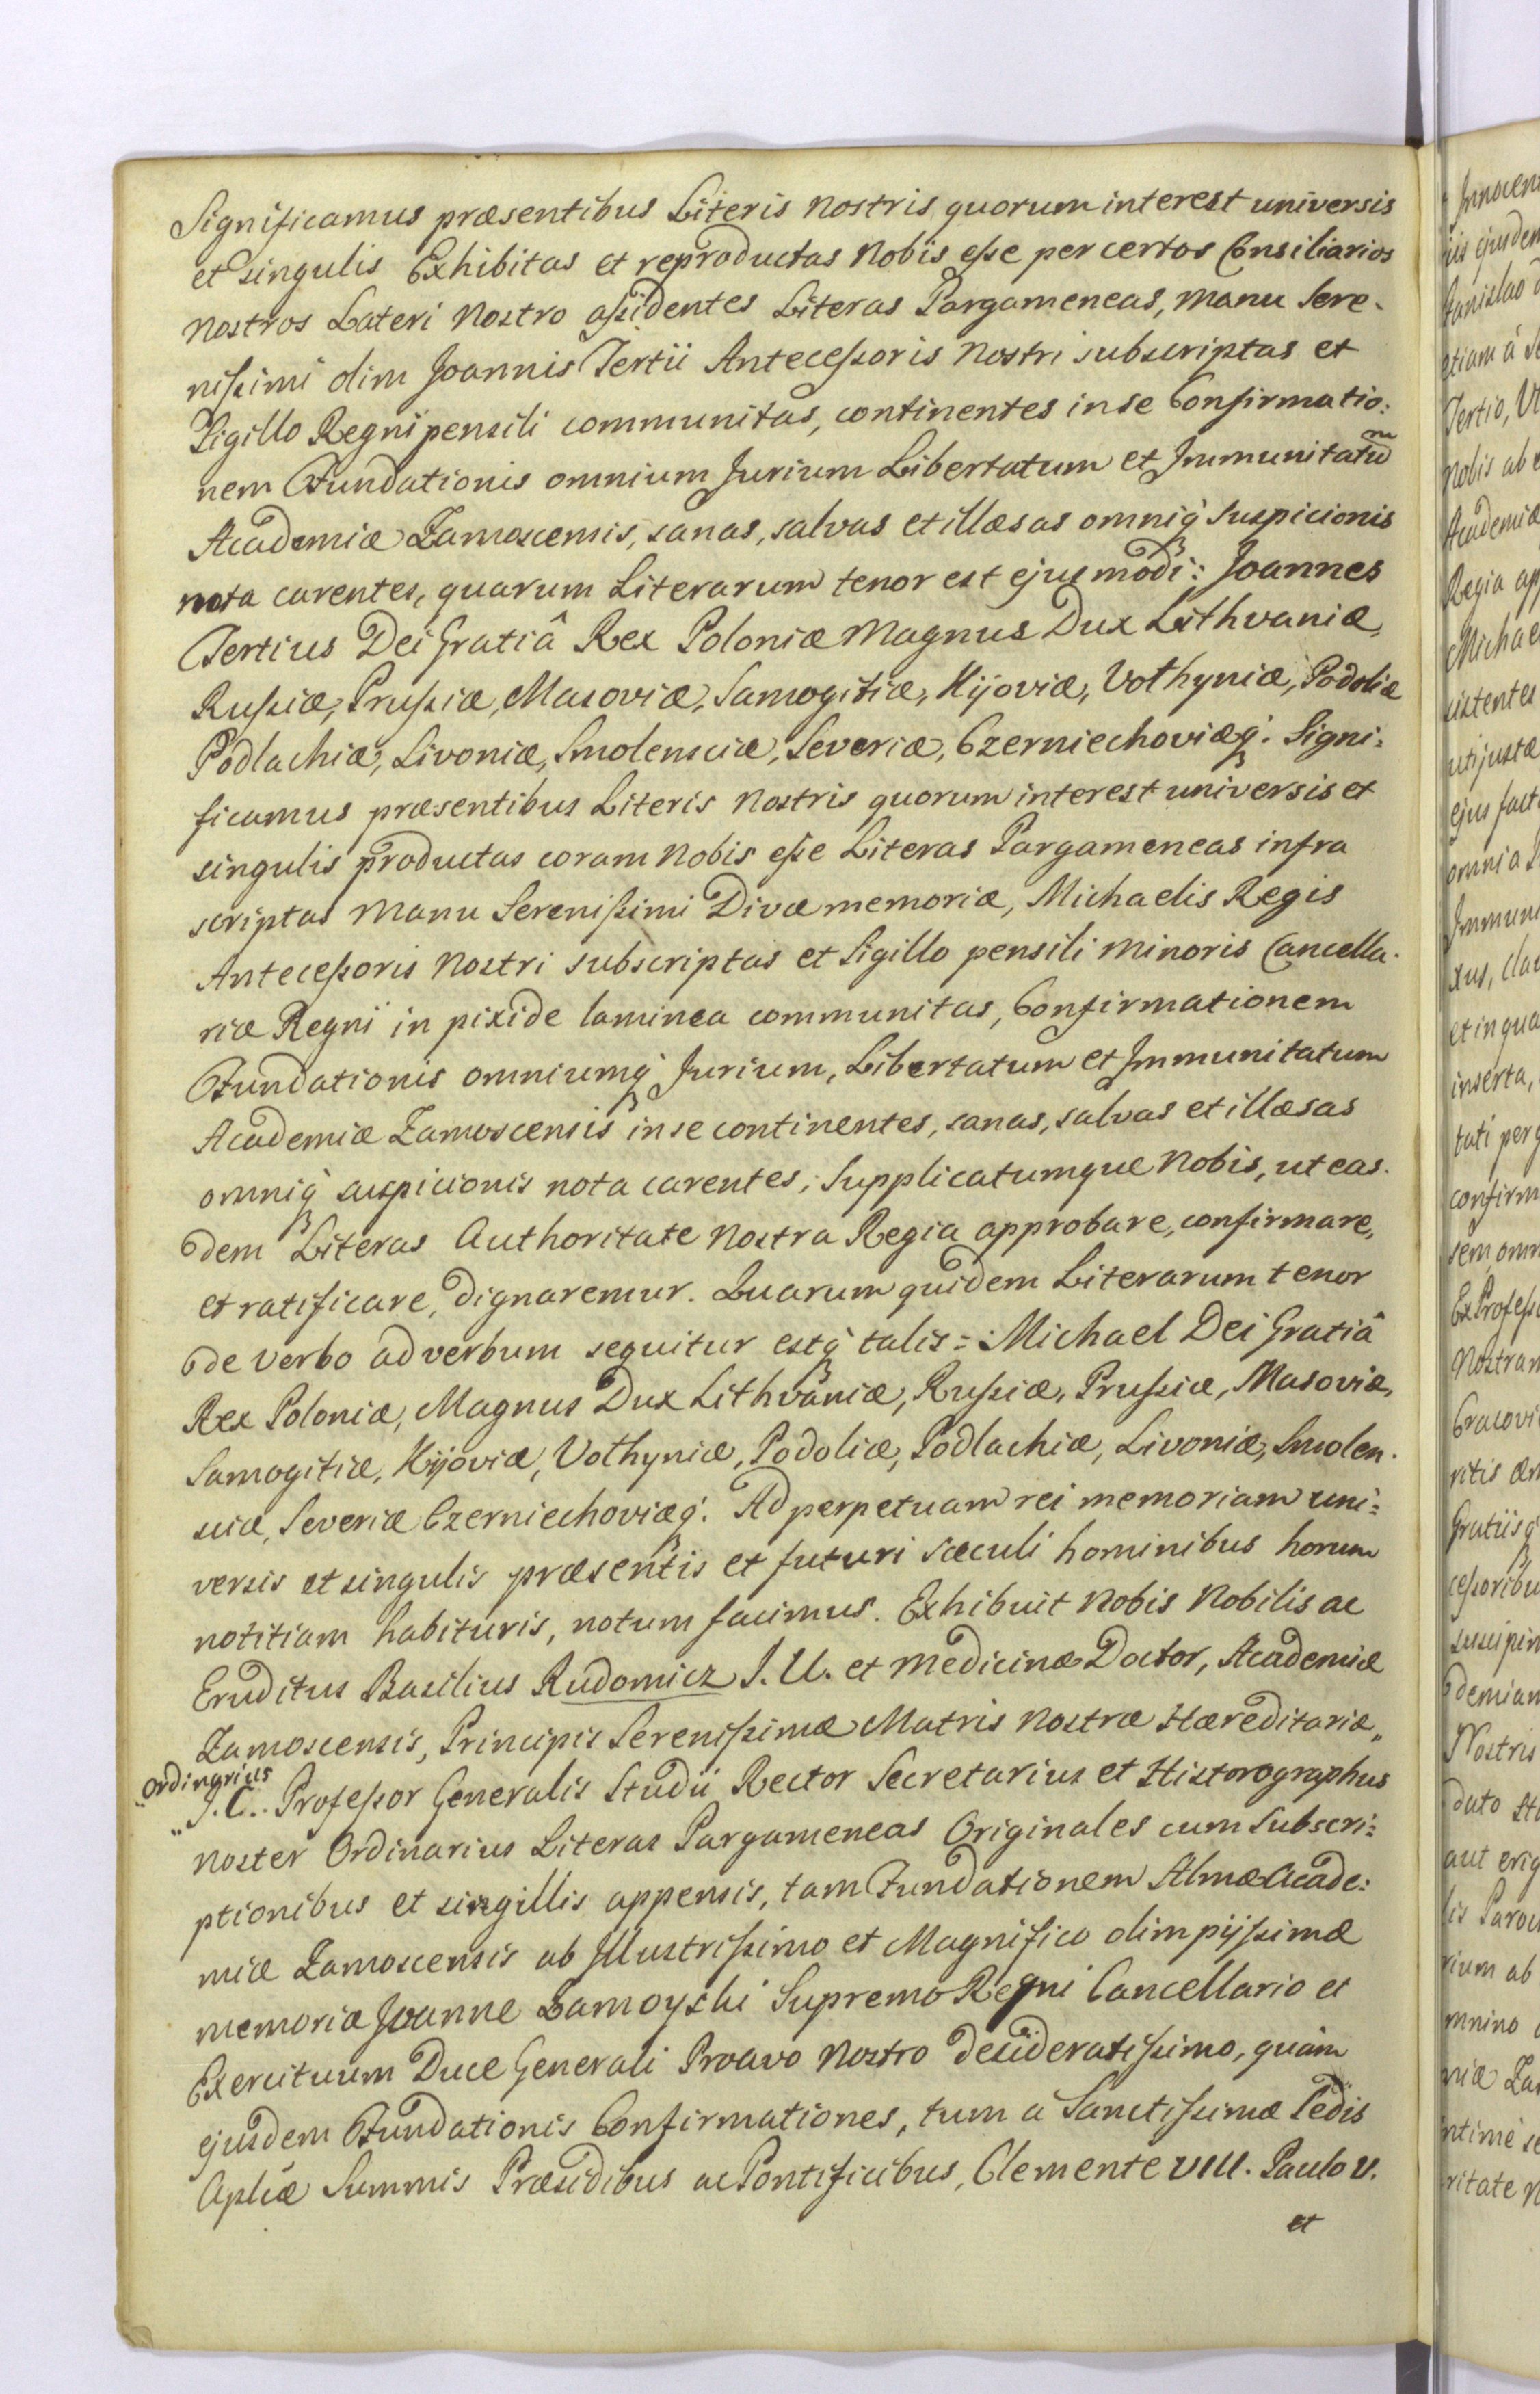 Significamus præsentibus Literis nostris quorum interest universis
et singulis Exhibitas et reproductas nobis eſse per certos Consiliarios
nostros Lateri nostro aſsidentes Literas Pargameneas, manu Sere-
niſsimi olim Joannis Tertii Anteceſsoris nostri subscriptas et
Sigillo Regni pensili communitas, continentes in se Confirmatio:
nem Fundationis omnium Jurium Libertatum et Immunitatum
Academiæ Zamoscensis, sanas, salvas et illæsas omniq́ suspicionis
nota carentes, quarum Literarum tenor est ejusmodi: Joannes
Tertius Dei Gratiâ Rex Poloniæ Magnus Dux Lithvaniæ,
Ruſsiæ, Pruſsiæ, Masoviæ, Samogitiæ, Kijoviæ, Volhyniæ, Podoliæ
Podlachiæ, Livoniæ, Smolensciæ, Severiæ, Czerniechoviæq́. Signi:
ficamus præsentibus Literis nostris quorum interest universis et
singulis productas coram nobis eſse Literas Pargameneas infra
scriptas manu Sereniſsimi Divæ memoriæ, Michaelis Regis
Anteceſsoris nostri subscriptas et Sigillo pensili minoris Cancella-
riæ Regni in pixide laminea communitas, Confirmationem
Fundationis omniumq́ Jurium, Libertatum et Immunitatum
Academiæ Zamoscensis in se continentes, sanas, salvas et illæsas
omniq́ suspicionis nota carentes; Supplicatumque nobis, ut eas-
dem Literas Authoritate nostra Regia approbare, confirmare,
et ratificare, dignaremur. Quarum quidem Literarum tenor
de verbo ad verbum sequitur estq́ talis: Michael Dei Gratiâ
Rex Poloniæ, Magnus Dux Lithvaniæ, Ruſsiæ, Pruſsiæ, Masoviæ,
Samogitiæ, Kijoviæ, Volhyniæ, Podoliæ, Podlachiæ, Livoniæ, Smolen-
sciæ, Severiæ Czerniechoviæq́. Ad perpetuam rei memoriam uni:
versis et singulis præsentis et futuri sæculi hominibus horum
notitiam habituris, notum facimus. Exhibuit nobis nobilis ac
Eruditus Basilius Rudomicz J. U. et Medicinæ Doctor, Academiæ
Zamoscensis, Principis Sereniſsimæ Matris nostræ Hæreditariæ,,
Ordinarius
„ J. C. Profeſsor Generalis Studii Rector Secretarius et Historographus
noster Ordinarius Literas Pargameneas Originales cum subscri:
ptionibus et singillis appensis, tam Fundationem Almæ Acade:
miæ Zamoscensis ab Illustriſsimo et Magnifico olim pijſsimæ
memoriæ Joanne Zamoyski Supremo Regni Cancellario et
Exercituum Duce Generali Proavo nostro desideratiſsimo, quàm
ejusdem Fundationis Confirmationes, tum á Sanctiſsimæ Sedis
Aplicæ Summis Præsidibus ac Pontificibus, Clemente VIII. Paulo V.
et